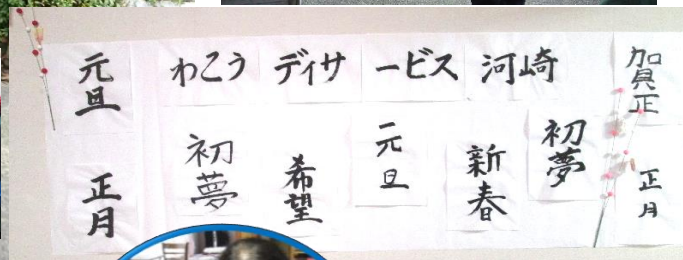 元旦
わこう ディサービス 河崎
賀正
正月
初夢
希望
元旦
新春
初夢
正月